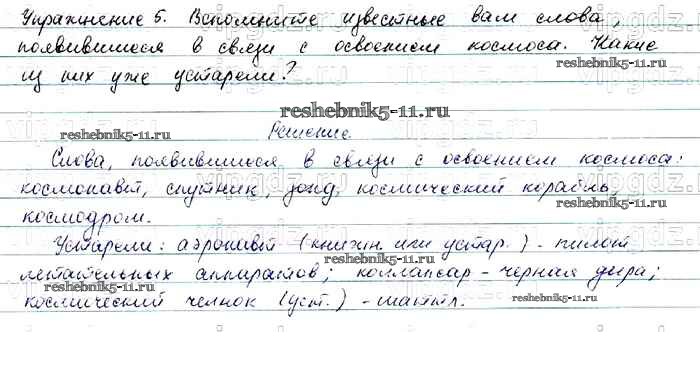 Упражнение 5. Вспомните известные вам слова,
появившиеся в связи с освоением космоса. Какие
из них уже устарели?
reshebnik5-11.ru
reshebnik5-11.ru
reshebnik5-11.ru
Решение
Слова, появившиеся в связи с освоением космоса:
космонавт, спутник, зонд, космический корабль,
космодром.
reshebnik5-11.ru
Устарели: аэронавт (книжн. или устар.) - пилот
летательных аппаратов; коллапсар - чёрная дыра;
reshebnik5-11.ru
космический челнок (уст.) - шаттл.
reshebnik5-11.ru
reshebnik5-11.ru